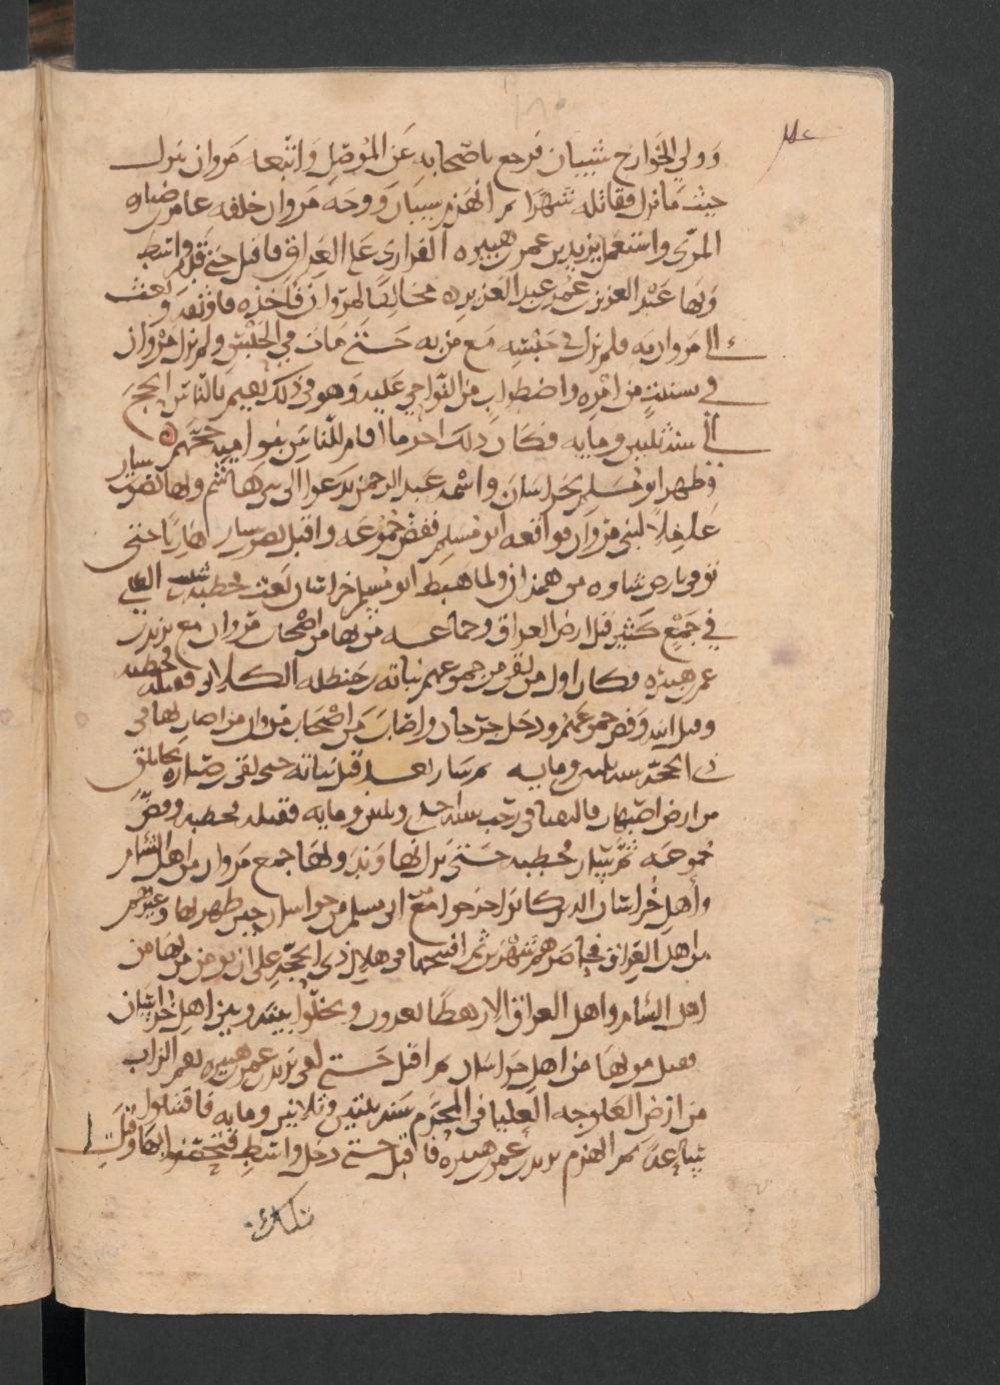 وولي الخوارج شيبان فرجع باصحابه عن الموصل واتبعه مروان ينزل
حيث ما نزل فقاتله شهرا ثم انهزم شيبان ووجه مروان خلفه عامر ضباره
المري واستعمل يزيد بن عمر هبيره الفزاري على العراق فاقبل حتى قدم واسط
وبها عبد العزيز عمر عبد العزيز مخالفا لمروان فاخذه فاوثقه وبعث
الى مروان به فلم يزل في حبسه مع من به حتى مات في الحبس ولم يزل مروان
في سنتين من امره واضطراب من النواحي عليه وهو في ذلك يقيم بالناس الحج
الى سنه ثلثين ومايه فكان ذلك اخر ما اقام للناس بنو اميه حجهم
وظهر ابو مسلم بخراسان واسمه عبد الرحمن يدعوا الى بني هاشم وبها نصر سيار
عاملا لبني مروان فواقعه ابو مسلم ففض جموعه واقبل نصر سيار هاربا حتى
توفي بارض ساوه من همذان ولما هبط ابو مسلم خراسان بعث قحطبه شبيب الطائي
في جمع كثير قبل ارض العراق وجماعه من بها من اصحاب مروان مع يزيد بن
عمر هبيره فكان اول من لقي من جموعهم نباته حنظله الكلابي قحطبه فقتله
وقتل ابنه وفض جموعهم ودخل جرجان واصاب من اصحاب مروان من اصاب بها في
ذي الحجه سنه ثلثين ومايه ثم سار بعد قتل نباته حتى لقي ضباره بجابلق
من ارض اصبهان فالتقيا في رجب سنه احدى وثلثين ومايه فقتله قحطبه وفض
جموعه ثم سار قحطبه حتى نزل نهاوند وبها جمع مروان من اهل الشام
واهل خراسان الذين كانوا خرجوا مع ابي مسلم من خراسان حين ظهر بها وغيرهم
من اهل العراق فحاصرهم شهرين ثم افتتحها في هلال ذي الحجه على ان يومن من بها من
اهل الشام واهل العراق الا رهطا يعدون ويخلوا بينه وبين اهل خراسان
فقتل من بها من اهل خراسان ثم اقبل حتى لقي يزيد عمر هبيره بفم الزاب
من ارض الفلوجه العليا في المحرم سنه اثنتين وثلاثين ومايه فاقتتلوا
ساعه ثم انهزم يزيد عمر هبيره فاقبل حتى دخل واسط فتحصن بها وقتل
تلك